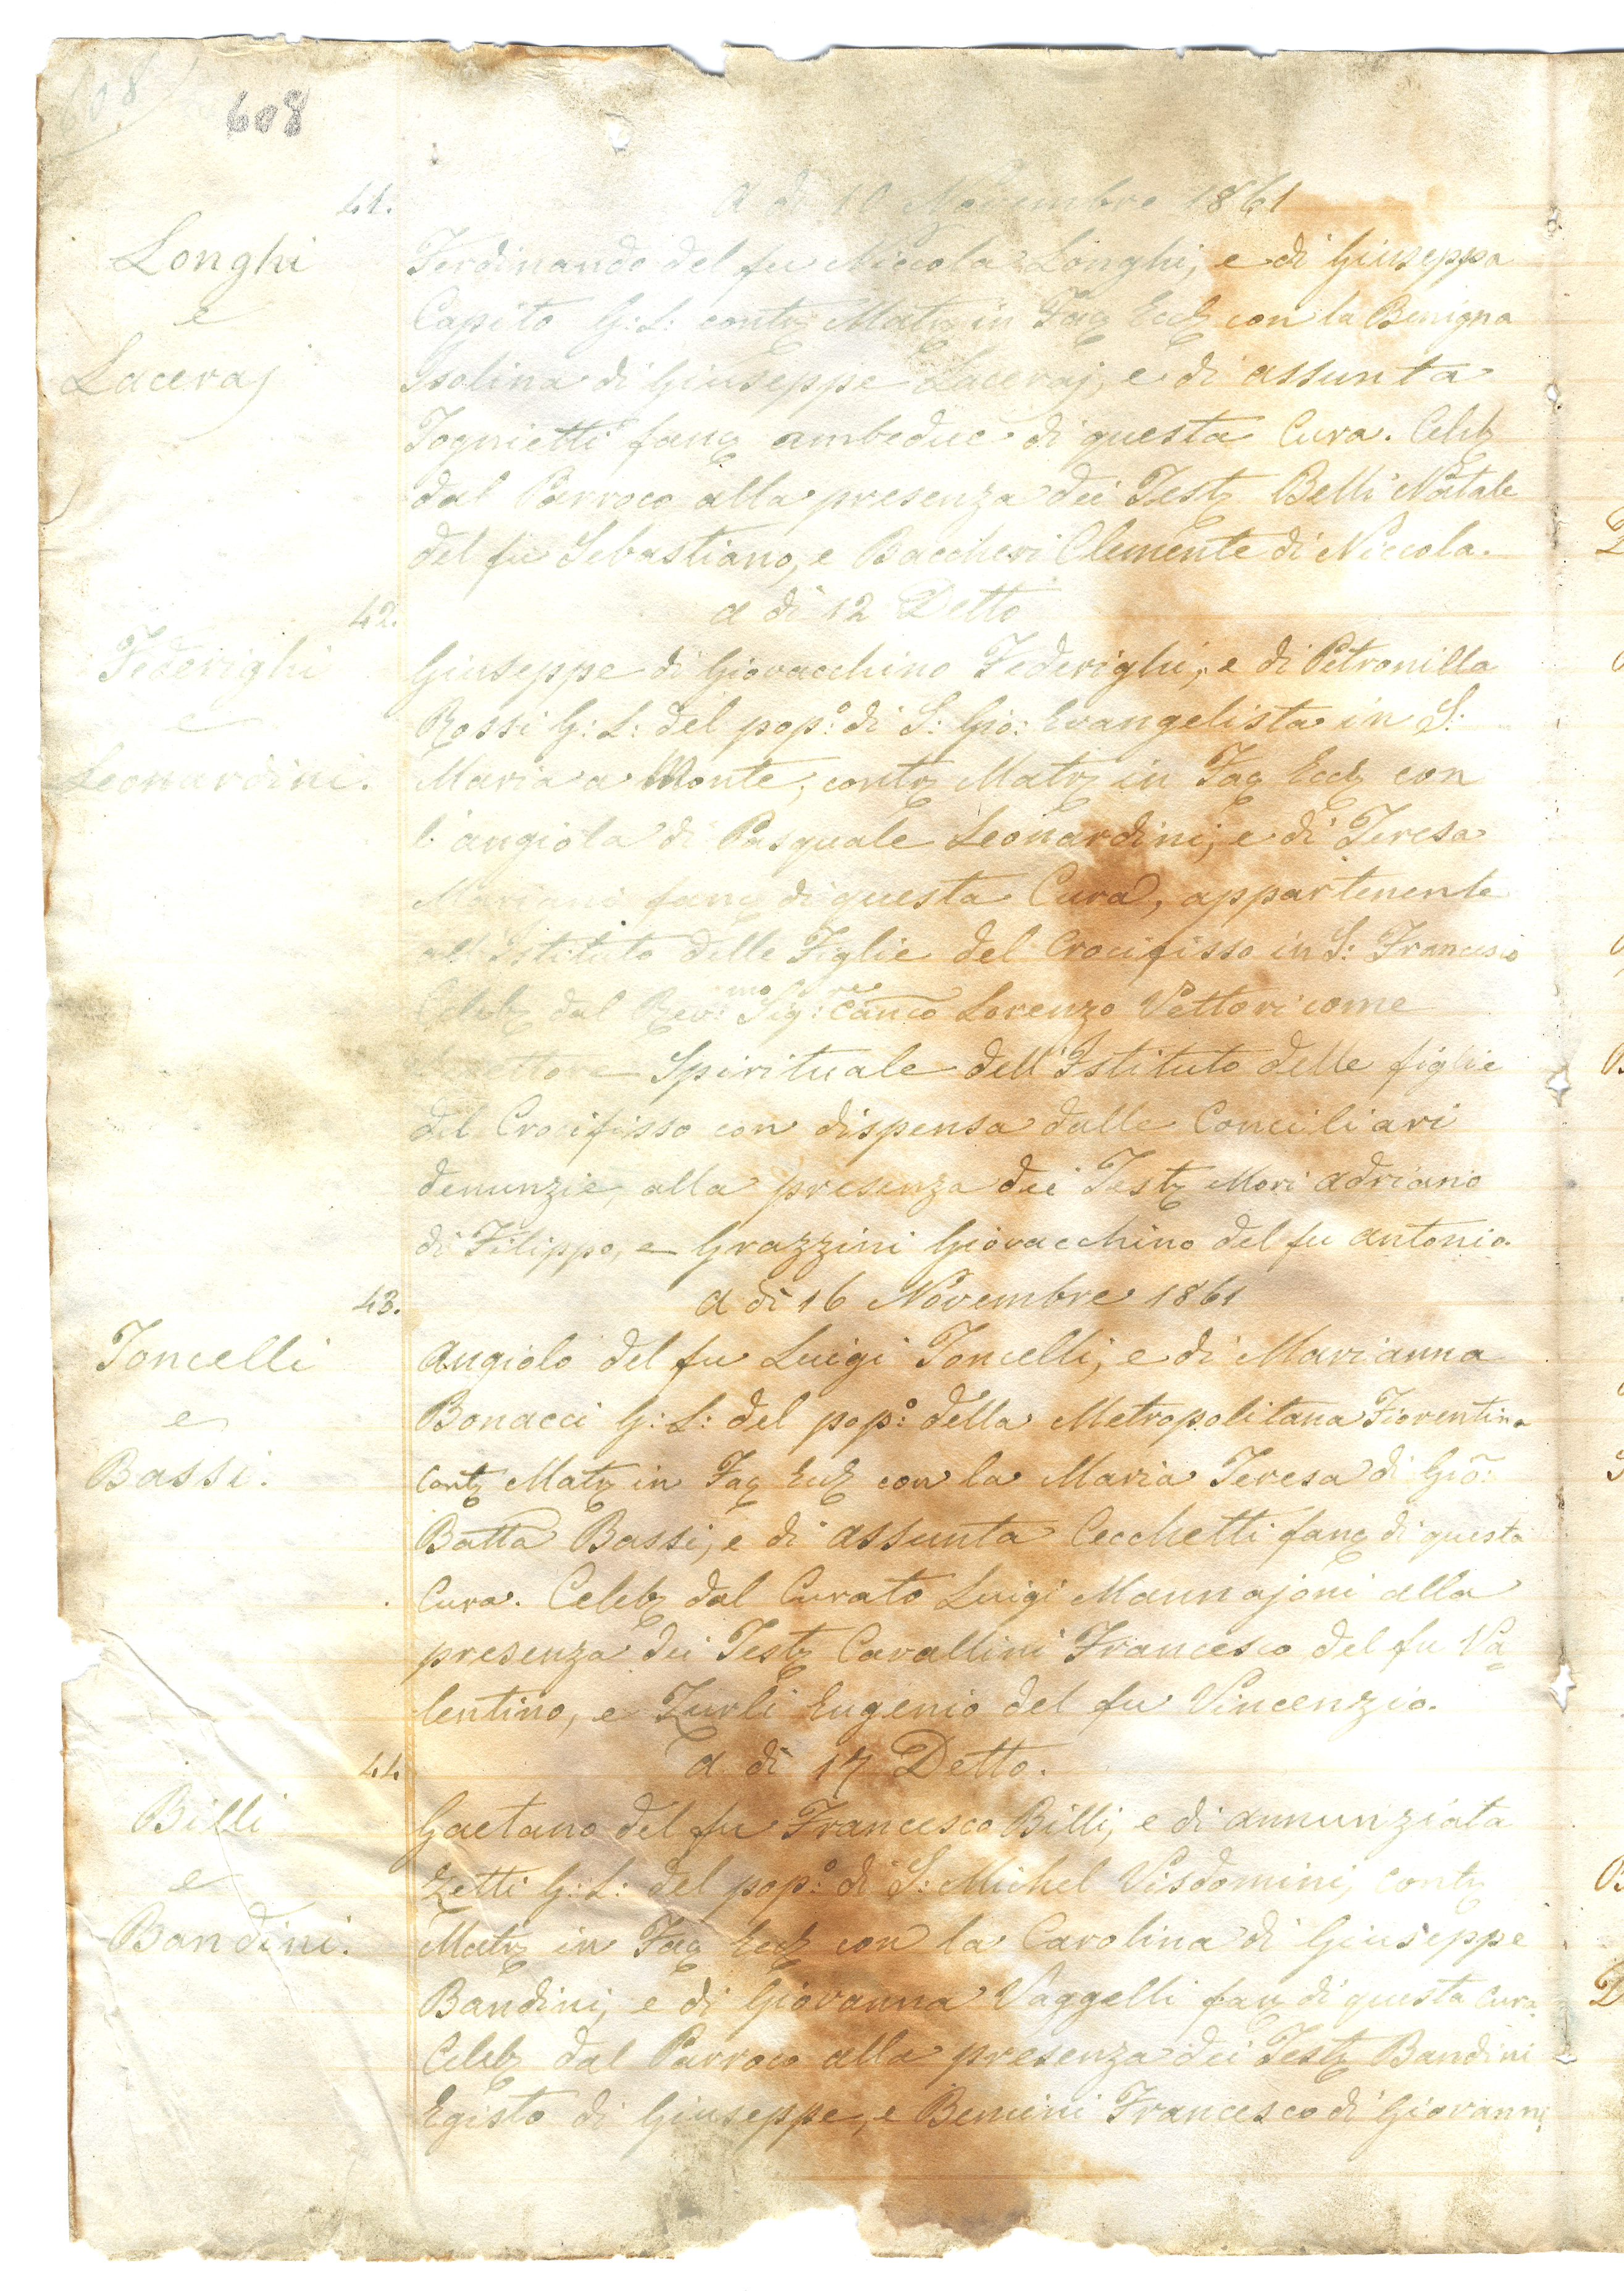 608
608
41. A dì 10 Novembre 1861
Longhi
e
Laceraj
Ferdinando del fu Niccola Longhi, e di Giuseppa
Capito G: L: contz Matz in Faz Eccz con la Benigna
Isolina di Giuseppe Laceraj, e di assunta
Tognietti fanz ambedue di questa Cura. Celebz
dal Parroco alla presenza dei Testz Belli Natale
del fu Sebastiano, e Baccheri Clemente di Niccola.
42. a dì 12 Detto
Federighi
e
Leonardini.
Giuseppe di Giovacchino Federighi, e di Petronilla
Rossi G: L: del pop:º di S: Gio: Evangelista in S:
Maria a Monte, contz Matz in Faz Eccz con
l'angiola di Pasquale Leonardini, e di Teresa
Mariani fanz di questa Cura, appartenente
all'Istituto delle Figlie del Crocifisso in S: Francesco
Celebz dal Rev:mo Sig:re Canco Lorenzo Vettori come
Direttore Spirituale dell'Istituto delle figlie
del Crocifisso con dispensa dalle Conciliari
denunzie, alla presenza dei Testz Mori Adriano
di Filippo, e Grazzini Giovacchino del fu Antonio.
43. A dì 16 Novembre 1861
Toncelli
e
Bassi.
Angiolo del fu Luigi Toncelli, e di Marianna
Bonacci G: L: del pop:º della Metropolitana Fiorentina
Contz Matz in Faz Eccz con la Maria Teresa di Gio:
Batta Bassi, e di Assunta Cecchetti fanz di questa
Cura. Celebz dal Curato Luigi Mannajoni alla
presenza dei Testz Cavallini Francesco del fu Va=
lentino, e Zurli Eugenio del fu Vincenzio.
44. A dì 17 Detto.
Billi
e
Bandini.
Gaetano del fu Francesco Billi, e di annunziata
Zetti G: L: del pop:º di S: Michel Visdomini, contz
Matz in Faz Eccz con la Carolina di Giuseppe
Bandini, e di Giovanna Vaggelli fanz di questa Cura.
Celebz dal Parroco alla presenza dei Testz Bandini
Egisto di Giuseppe, e Bencini Francesco di Giovanni